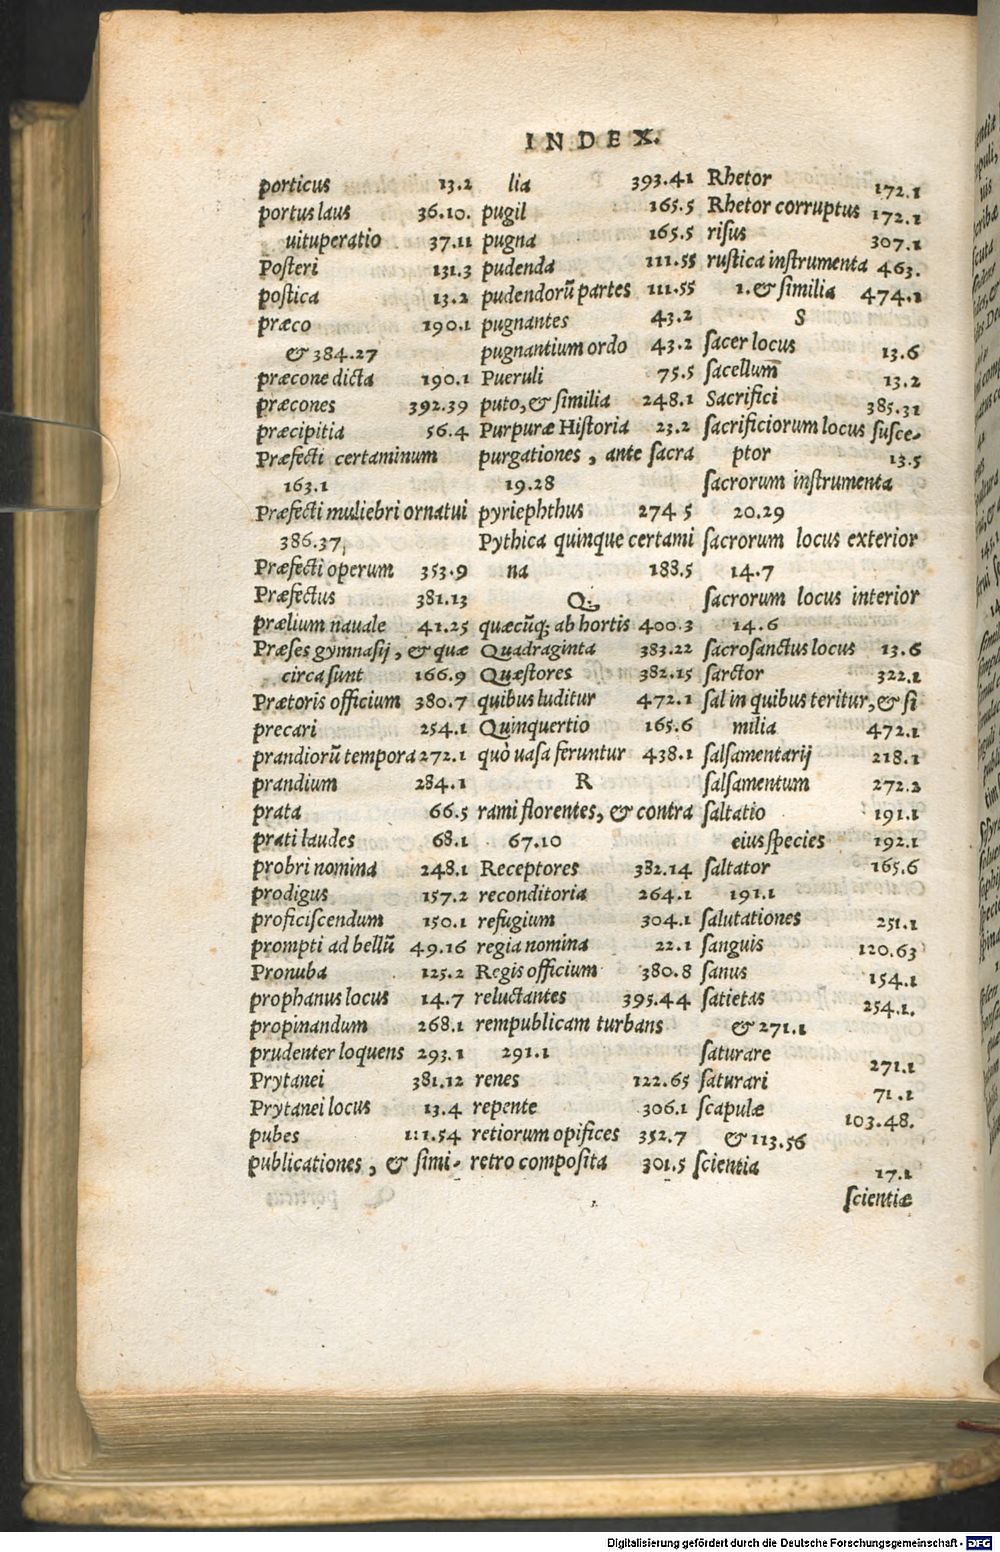 INDEX.
porticus 13.2
portus laus 36.10.
uituperatio 37.11
Posteri 131.3
postica 13.2
præco 190.1
& 384.27
præcone dicta 190.1
præcones 392.39
præcipitia 56.4
Præfecti certaminum
163.1
Præfecti muliebri ornatui
386.37,
Præfecti operum 353.9
Præfectus 381.13
prælium nauale 41.25
Præses gymnasij, & quæ
circa sunt 166.9
Prætoris officium 380.7
precari 254.1
prandiorũ tempora 272.1
prandium 284.1
prata 66.5
prati laudes 68.1
probri nomina 248.1
prodigus 157.2
proficiscendum 150.1
prompti ad bellũ 49.16
Pronuba 125.2
prophanus locus 14.7
propinandum 268.1
prudenter loquens 293.1
Prytanei 381.12
Prytanei locus 13.4
pubes 111.54
publicationes, & simi-
lia 393.41
pugil 165.5
pugna 165.5
pudenda 111.55
pudendorũ partes 111.55
pugnantes 43.2
pugnantium ordo 43.2
Pueruli 75.5
puto, & similia 248.1
Purpuræ Historia 23.2
purgationes, ante sacra
19.28
pyriephthus 274 5
Pythica quinque certami
na 188.5
Q.
quæcũq; ab hortis 400.3
Quadraginta 383.22
Quæstores 382.15
quibus luditur 472.1
Quinquertio 165.6
quò uasa feruntur 438.1
R
rami florentes, & contra
67.10
Receptores 382.14
reconditoria 264.1
refugium 304.1
regia nomina 22.1
Regis officium 380.8
reluctantes 395.44
rempublicam turbans
291.1
renes 122.65
repente 306.1
retiorum opifices 352.7
retro composita 301.5
Rhetor 172.1
Rhetor corruptus 172.1
risus 307.1
rustica instrumenta 463.
1. & similia 474.1
S
sacer locus 13.6
sacellum̃ 13.2
Sacrifici 385.31
sacrificiorum locus susce-
ptor 13.5
sacrorum instrumenta
20.29
sacrorum locus exterior
14.7
sacrorum locus interior
14.6
sacrosanctus locus 13.6
sarctor 322.1
sal in quibus teritur, & si
milia 472.1
salsamentarij 218.1
salsamentum 272.2
saltatio 191.1
eius species 192.1
saltator 165.6
191.1
salutationes 251.1
sanguis 120.63
sanus 154.1
satietas 254.1.
& 271.1
saturare 271.1
saturari 71.1
scapulæ 103.48.
& 113.56
scientia 17.1
scientiæ
Digitalisierung gefördert durch die Deutsche Forschungsgemeinschaft - DFG